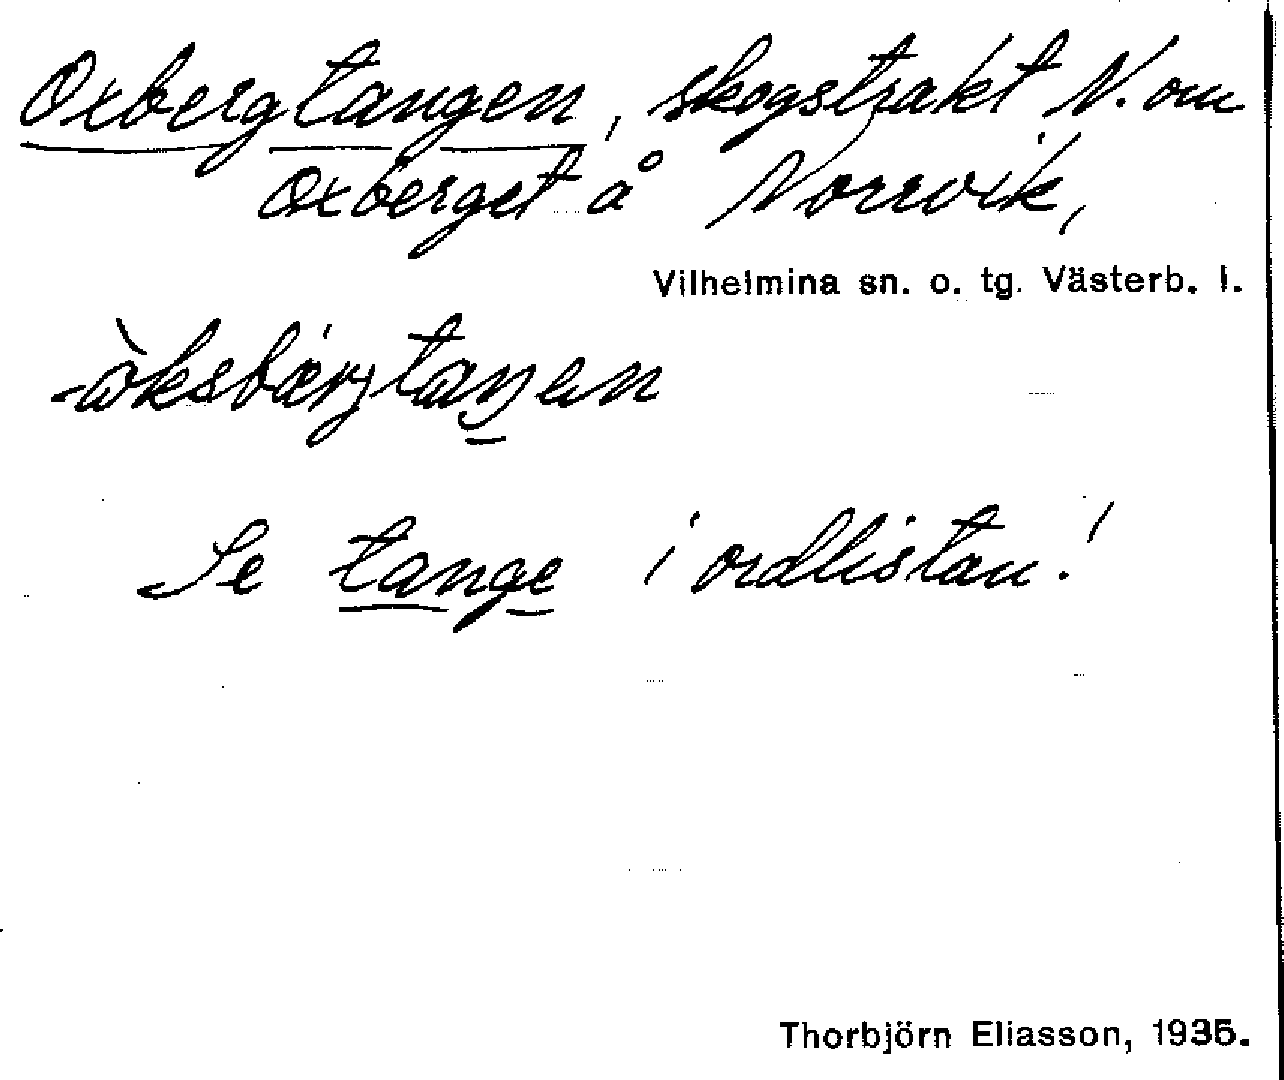 Oxbergtangen, skogstrakt N. om
Oxberget å Norrvik,
Vilhelmina sn. o. tg. Västerb. l.
-òksbærjtaŋen
Se tange i ordlistan!
Thorbjörn Eliasson, 1935.